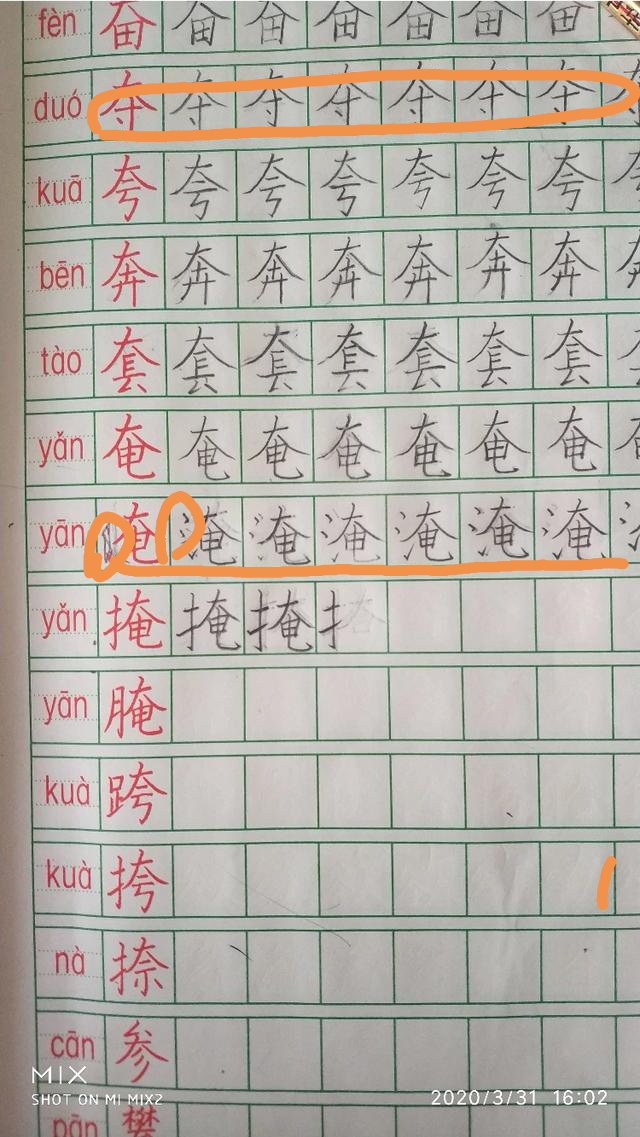 fèn 奋 奋 奋 奋 奋 奋 奋
duó 夺 夺 夺 夺 夺 夺 夺
kuā 夸 夸 夸 夸 夸 夸 夸
bēn 奔 奔 奔 奔 奔 奔 奔
tào 套 套 套 套 套 套 套
yǎn 奄 奄 奄 奄 奄 奄 奄
yān 淹 淹 淹 淹 淹 淹 淹
yǎn 掩 掩 掩 扌
yān 腌
kuà 跨
kuà 挎
nà 捺
cān 参
MIX
SHOT ON MI MIX2
2020/3/31 16:02
pān 攀